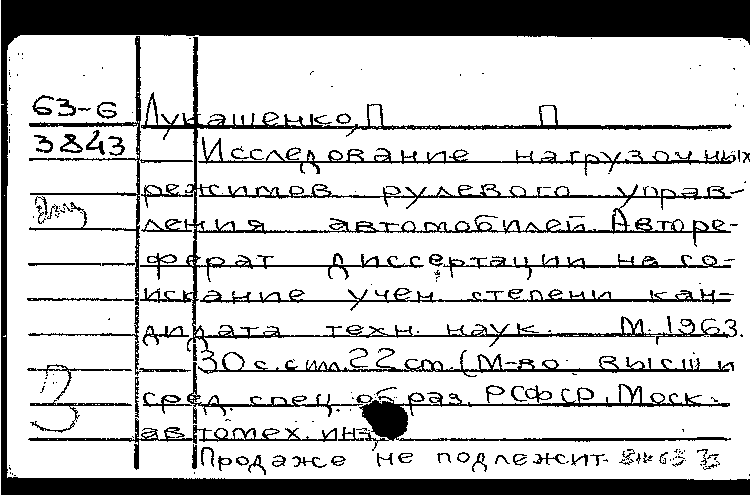 63-6 Лукашенко, П П
3843 Исследование нагрузочных
режимов рулевого управ-
ления автомобилей. Авторе-
ферат диссертации на со-
искание учен. степени кан-
дидата техн. наук. М., 1963.
30 с. с ил. 22 см. (М-во высш и
сред. спец. образ. РСФСР. Моск.
автомех. инт)
Продаже не подлежит